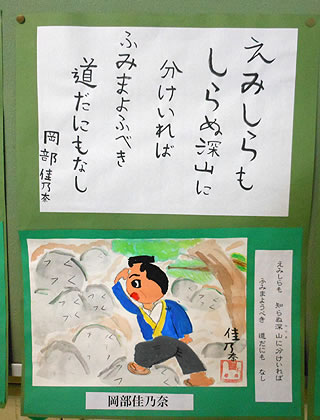 えみしらも
しらぬ深山に
分けいれば
ふみまよふべき
道だにもなし
岡部 佳乃奈
えみしらも 知らぬ深山に分けいれば
ふみまようべき 道だにも なし
佳乃奈
岡部佳乃奈